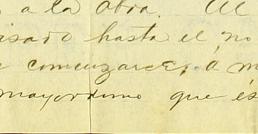 a la obra. Al
isado hasta el no
comenzarce, á m
mayordomo que és